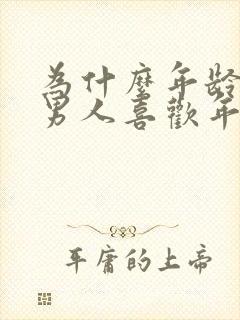 為什麼年齡
男人喜歡年
平庸的上帝